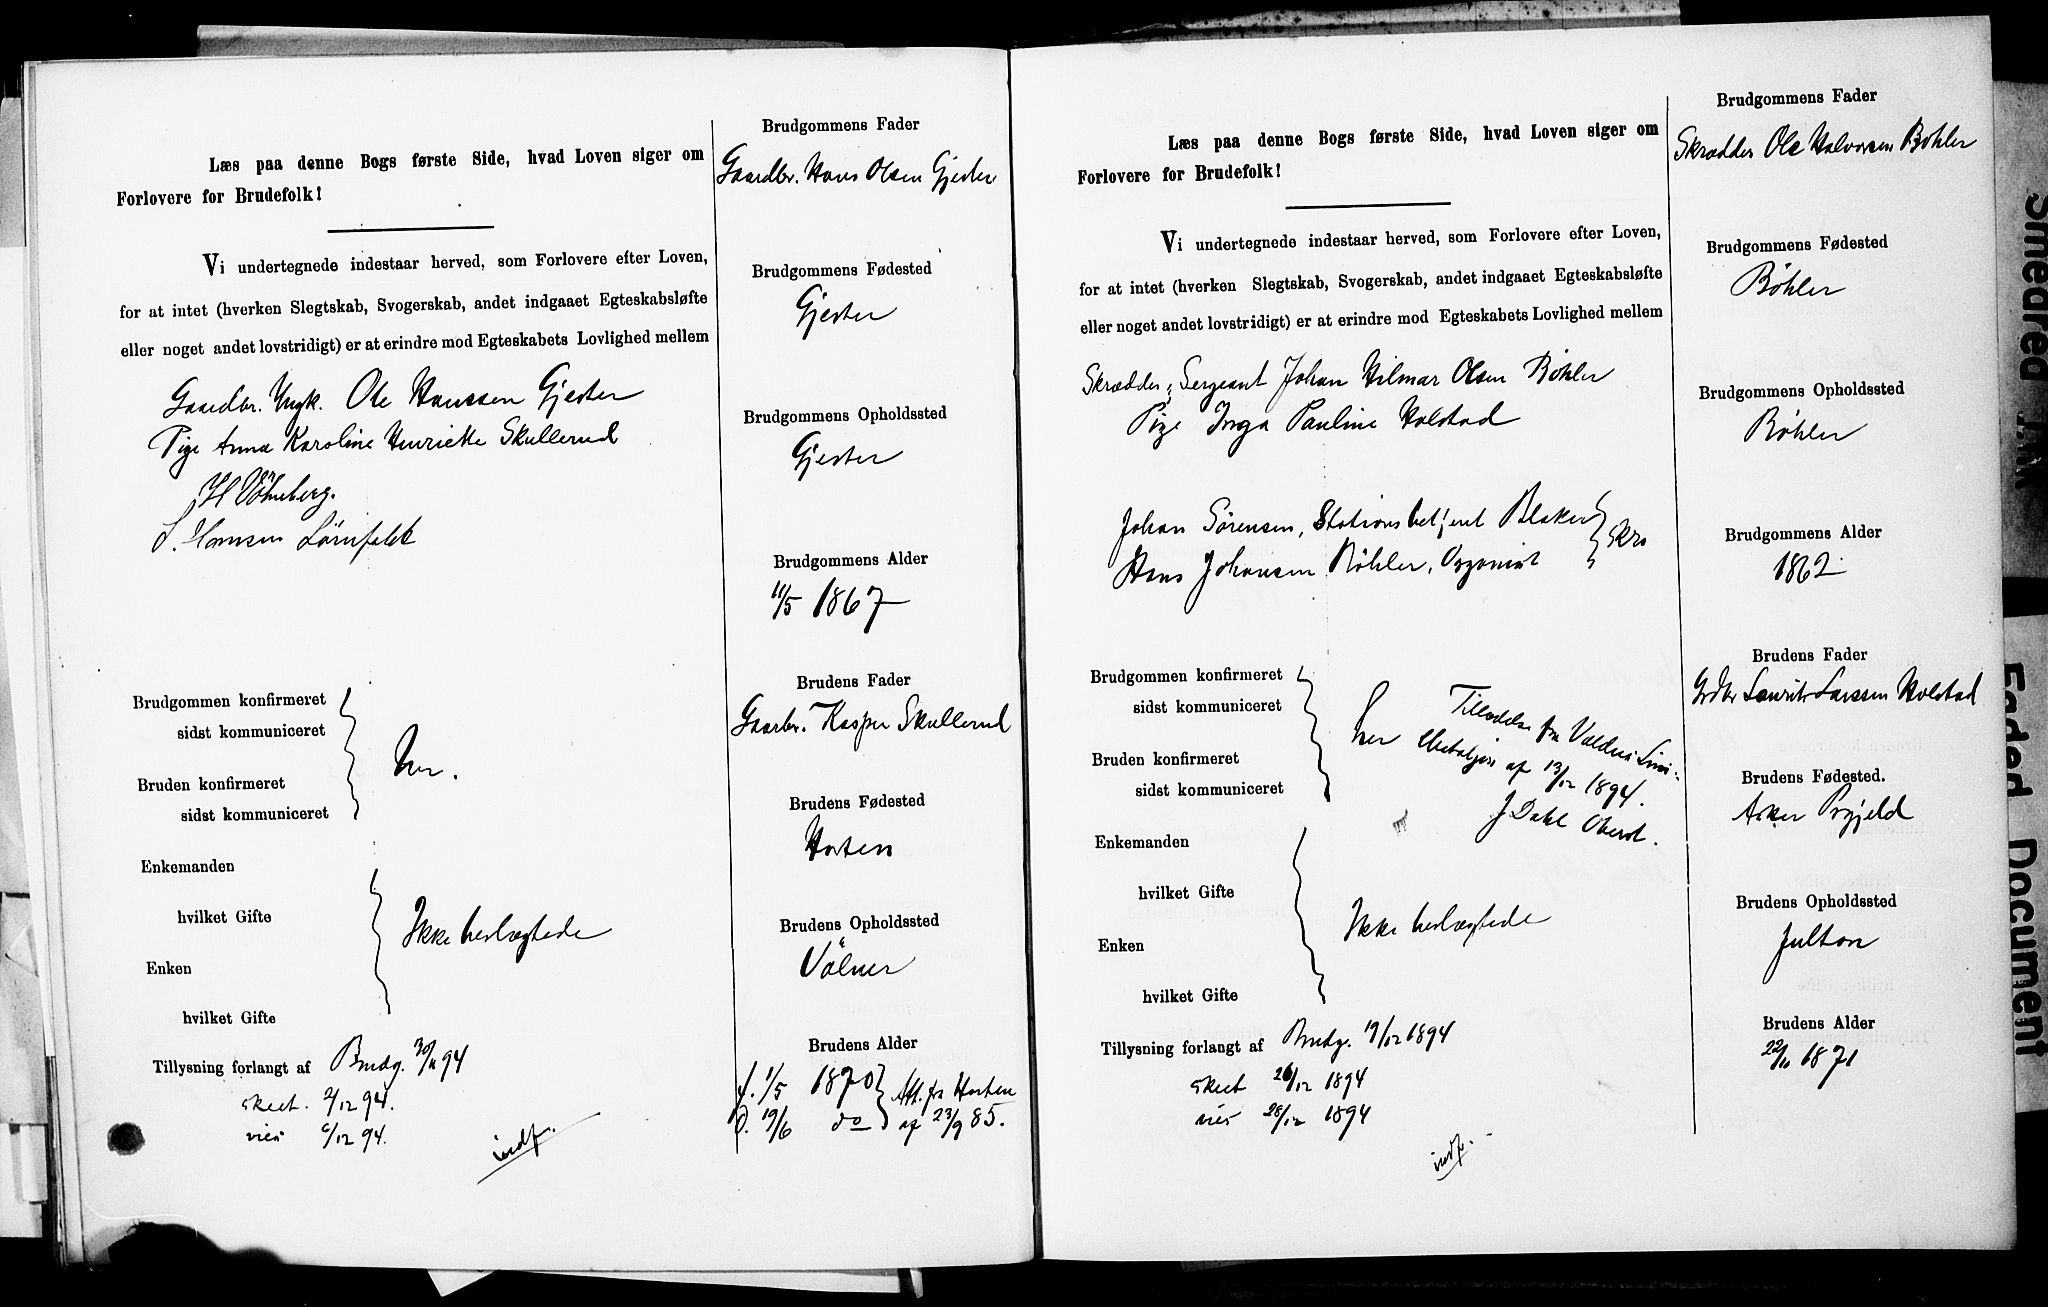 Læs paa denne Bogs første Side, hvad Loven siger om
Forlovere for Brudefolk!
Vi undertegnede indestaar herved, som Forlovere efter Loven,
for at intet (hverken Slegtskab, Svogerskab, andet indgaaet Egteskabsløfte
eller noget andet lovstridigt) er at erindre mod Egteskabets Lovlighed mellem
Gaardbr. Ungk. Ole Hanssen Gjester
Pige Anna Karoline Henriette Skullerud
H Vöhneberg.
Hansen
Brudgommen konfirmeret
sidst kommuniceret
Bruden konfirmeret
sidst kommuniceret
her.
Enkemanden
hvilket Gifte
Enken
hvilket Gifte
Ikke beslægtede
Tillysning forlangt af Brudg. 30/11 94
skeet. 2/12 94.
vies 6/12 94.
indf.
Brudgommens Fader
Gaardbr. Hans Olsen Gjester
Brudgommens Fødested
Gjester
Brudgommens Opholdssted
Gjester
Brudgommens Alder
11/5 1867
Brudens Fader
Gaarbr. Kasper Skullerud
Brudens Fødested
Horten
Brudens Opholdssted
Völner
Brudens Alder
f. 1/5 1870 Att. fra Horten
D. 19/6 do af 23/9 85.
Læs paa denne Bogs første Side, hvad Loven siger om
Forlovere for Brudefolk!
Vi undertegnede indestaar herved, som Forlovere efter Loven,
for at intet (hverken Slegtskab, Svogerskab, andet indgaaet Egteskabsløfte
eller noget andet lovstridigt) er at erindre mod Egteskabets Lovlighed mellem
Skrædder, Sergeant Johan Hilmar Olsen Bøhler
Pige Inga Pauline Holstad
Johan Sørensen, Stationsbetjent Blaker
Hans Johansen Bøhler, Organist
Brudgommen konfirmeret
sidst kommuniceret
Bruden konfirmeret
sidst kommuniceret
her
Tilladelse fra Valders Linie-
Bataljon af 13/12 1894.
J Dahl Oberst.
Enkemanden
hvilket Gifte
Enken
hvilket Gifte
Ikke beslægtede
Tillysning forlangt af Brudg. 19/12 1894
skeet 26/12 1894
vies 28/12 1894
indf.
Brudgommens Fader
Skrædder Ole Halvorsen Bøhler
Brudgommens Fødested
Bøhler
Brudgommens Opholdssted
Bøhler
Brudgommens Alder
1862
Brudens Fader
Grdbr Laurits Larssen Holstad
Brudens Fødested.
Asker Prgjeld
Brudens Opholdssted
Julton
Brudens Alder
22/10 1871
Smedred
Faded Document